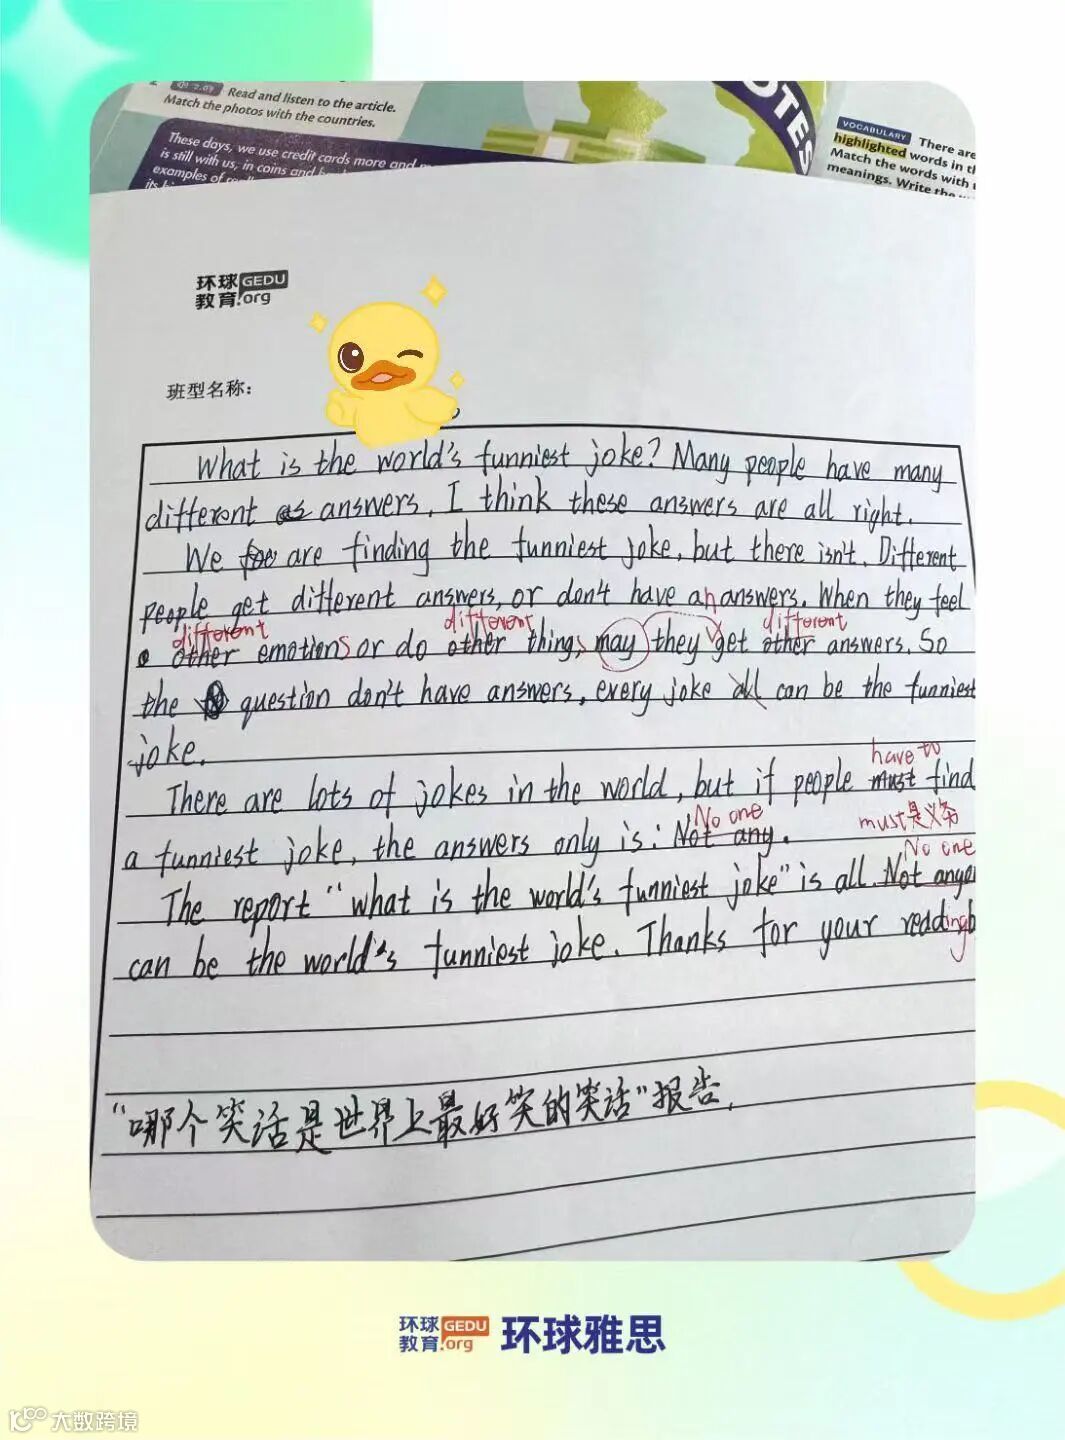 2.09 Read and listen to the article.
Match the photos with the countries.
These days, we use credit cards more and
is still with us, in coins and
examples of
OTES
VOCABULARY There are
highlighted words in th
Match the words with
meanings. Write the
环球 GEDU
教育.org
班型名称：
What is the world's funniest joke? Many people have many
different answers. I think these answers are all right.
We are finding the funniest joke, but there isn't. Different
people get different answers, or don't have an answers. When they feel
different different different
other emotions or do other things may they get other answers. So
the question don't have answers, every joke all can be the funniest
joke.
have to
There are lots of jokes in the world, but if people must find
No one must是义务
a funniest joke, the answers only is: Not any.
No one
The report "what is the world's funniest joke" is all. Not anyo
can be the world's funniest joke. Thanks for your reading
"哪个笑话是世界上最好笑的笑话"报告.
环球 GEDU 教育.org 环球雅思
大数跨境